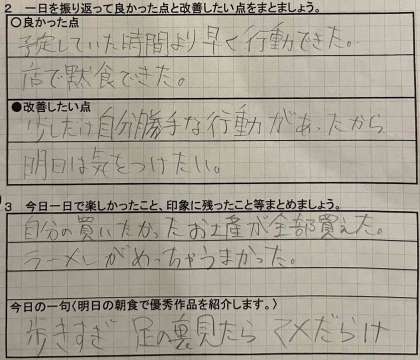 2 一日を振り返って良かった点と改善したい点をまとめましょう。
○良かった点
予定していた時間より早く行動できた。
店で黙食できた。
●改善したい点
少しだけ自分勝手な行動があったから
明日は気をつけたい。
3 今日一日で楽しかったこと、印象に残ったこと等まとめましょう。
自分の買いたかったお土産が全部買えた。
ラーメンがめっちゃうまかった。
今日の一句〈明日の朝食で優秀作品を紹介します。〉
歩きすぎ 足の裏見たら マメだらけ